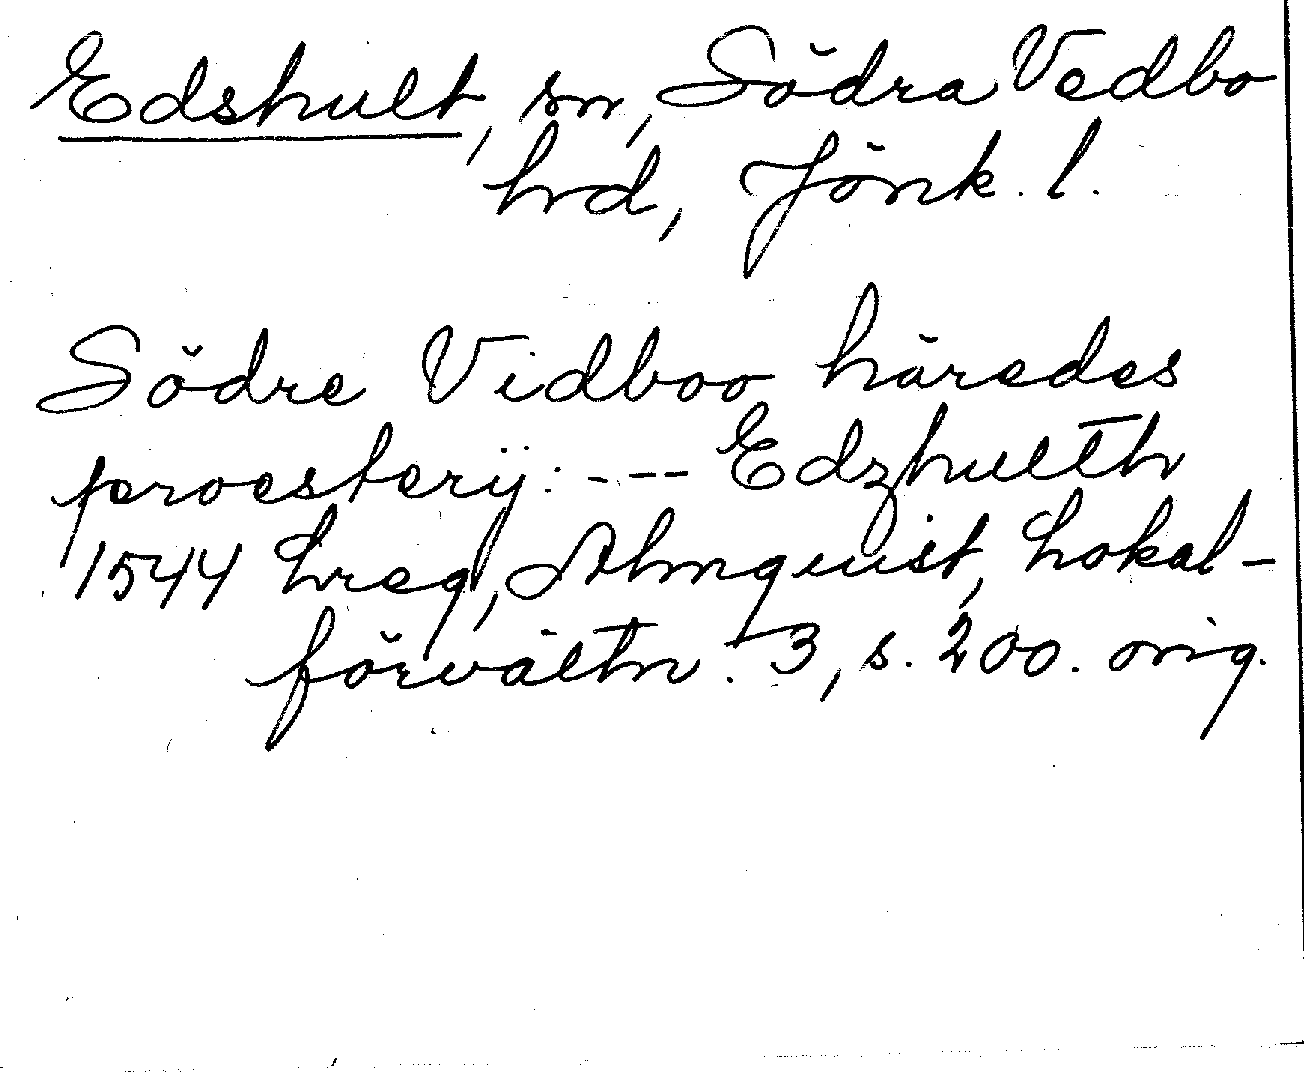 Edshult, sn, Södra Vedbo
hrd, Jönk. l.
Södre Vidboo häredes
proesterÿ: --- Edzhultth
1544 hreg, Almquist, Lokal-
förvaltn. 3, s. 200. orig.